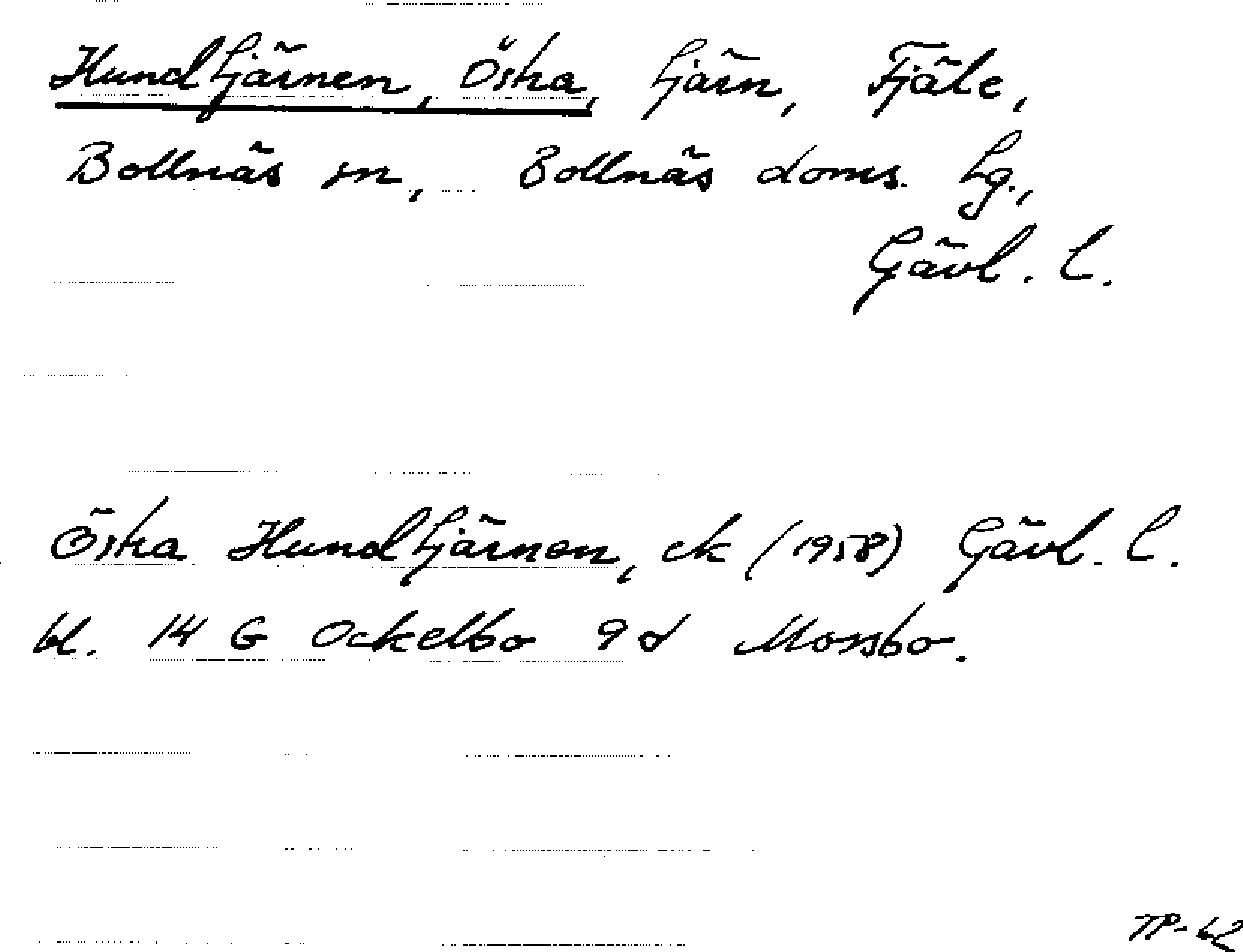 Hundtjärnen, Östra, tjärn, Fjäle,
Bollnäs sn, Bollnäs doms. tg.,
Gävl. l.
Östra Hundtjärnen, ek (1958) Gävl. l.
bl. 14 G Ockelbo 9 d Mossbo.
TP-bl